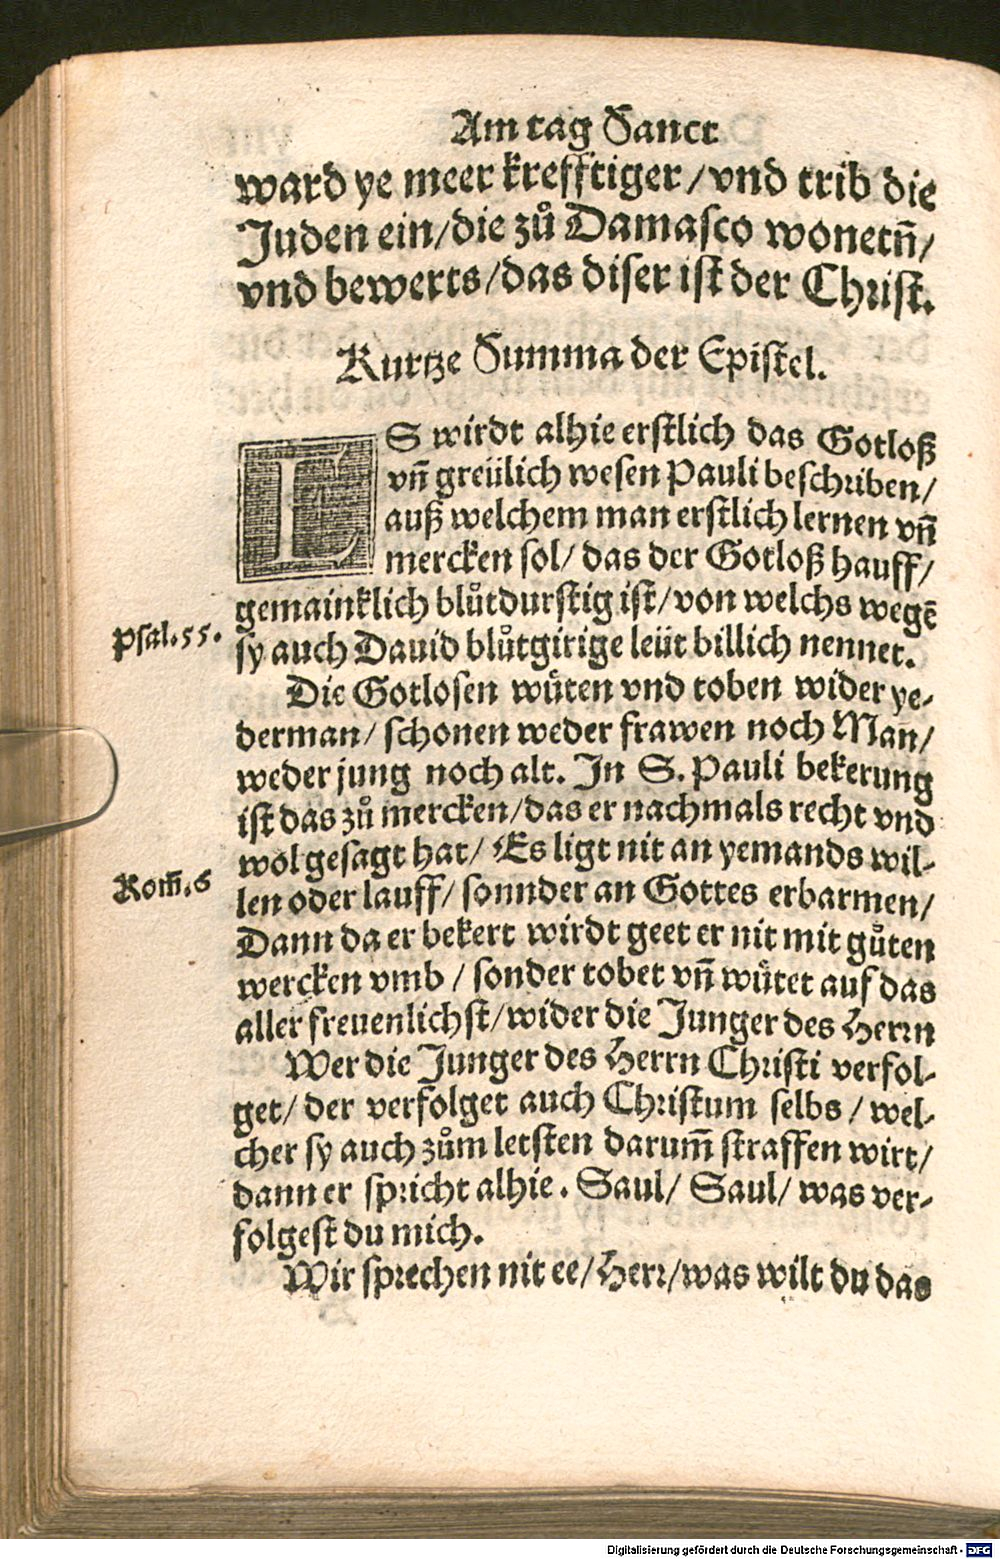 Am tag Sanct
ward ye meer krefftiger / vnd trib die
Juden ein / die zuͦ Damasco wonetn̄ /
vnd bewerts / das diser ist der Christ.
Kurtze Summa der Epistel.
ES wirdt alhie erstlich das Gotloß
vn̄ greülich wesen Pauli beschriben /
auß welchem man erstlich lernen vn̄
mercken sol / das der Gotloß hauff /
gemainklich bluͦtdurstig ist / von welchs wegē
Psal. 55. sy auch Dauid bluͦtgirige leüt billich nennet.
Die Gotlosen wuͤten vnd toben wider ye-
derman / schonen weder frawen noch Man /
weder jung noch alt. In S. Pauli bekerung
ist das zuͦ mercken / das er nachmals recht vnd
wol gesagt hat / Es ligt nit an yemands wil-
Rom̄. 6 len oder lauff / sonnder an Gottes erbarmen /
Dann da er bekert wirdt geet er nit mit guͦten
wercken vmb / sonder tobet vn̄ wuͤtet auf das
aller freuenlichst / wider die Junger des Herrn
Wer die Junger des Herrn Christi verfol-
get / der verfolget auch Christum selbs / wel-
cher sy auch zuͦm letsten darum̄ straffen wirt /
dann er spricht alhie. Saul / Saul / was ver-
folgest du mich.
Wir sprechen nit ee / Herr / was wilt du das
Digitalisierung gefördert durch die Deutsche Forschungsgemeinschaft - DFG